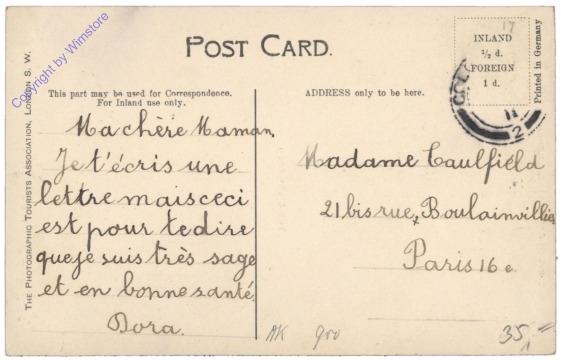 Copyright by Wimstore
POST CARD.
17
INLAND
½ d.
FOREIGN
1 d.
Printed in Germany
THE PHOTOGRAPHIC TOURISTS ASSOCIATION, LONDON S. W.
This part may be used for Correspondence.
For Inland use only.
ADDRESS only to be here.
Ma chère Maman,
Je t'écris une
lettre mais ceci
est pour te dire
que je suis très sage
et en bonne santé.
Dora.
Madame Caulfield
21 bis rue, Boulainvillier
Paris 16 e
AK 900
35,=